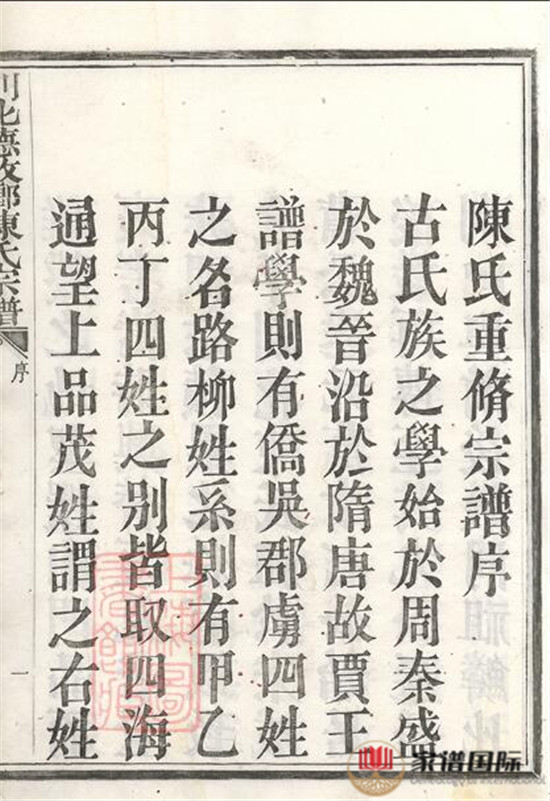 陳氏重脩宗譜序
古氏族之學始於周秦盛
於魏晉沿於隋唐故賈王
譜學則有僑吳郡虜四姓
之名路柳姓系則有甲乙
丙丁四姓之别皆取四海
通望上品茂姓謂之右姓
陳氏宗譜
序
一
家谱国际